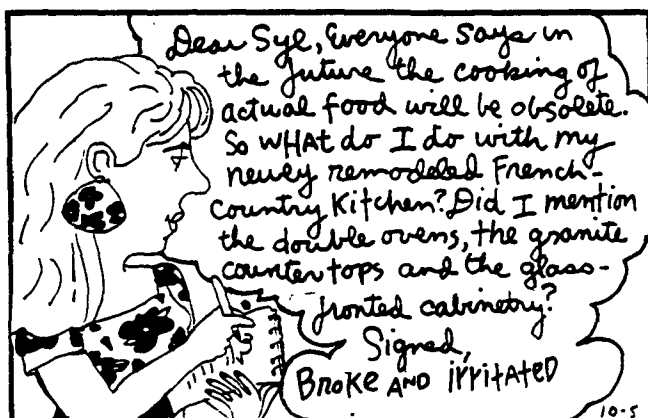 Dear Syl, Everyone says in
the future the cooking of
actual food will be obsolete.
So WHAt do I do with my
newly remodeled French-
Country Kitchen? Did I mention
the double ovens, the granite
counter tops and the glass-
fronted cabinetry?
Signed,
BROKE AND IRRITATED
10-5